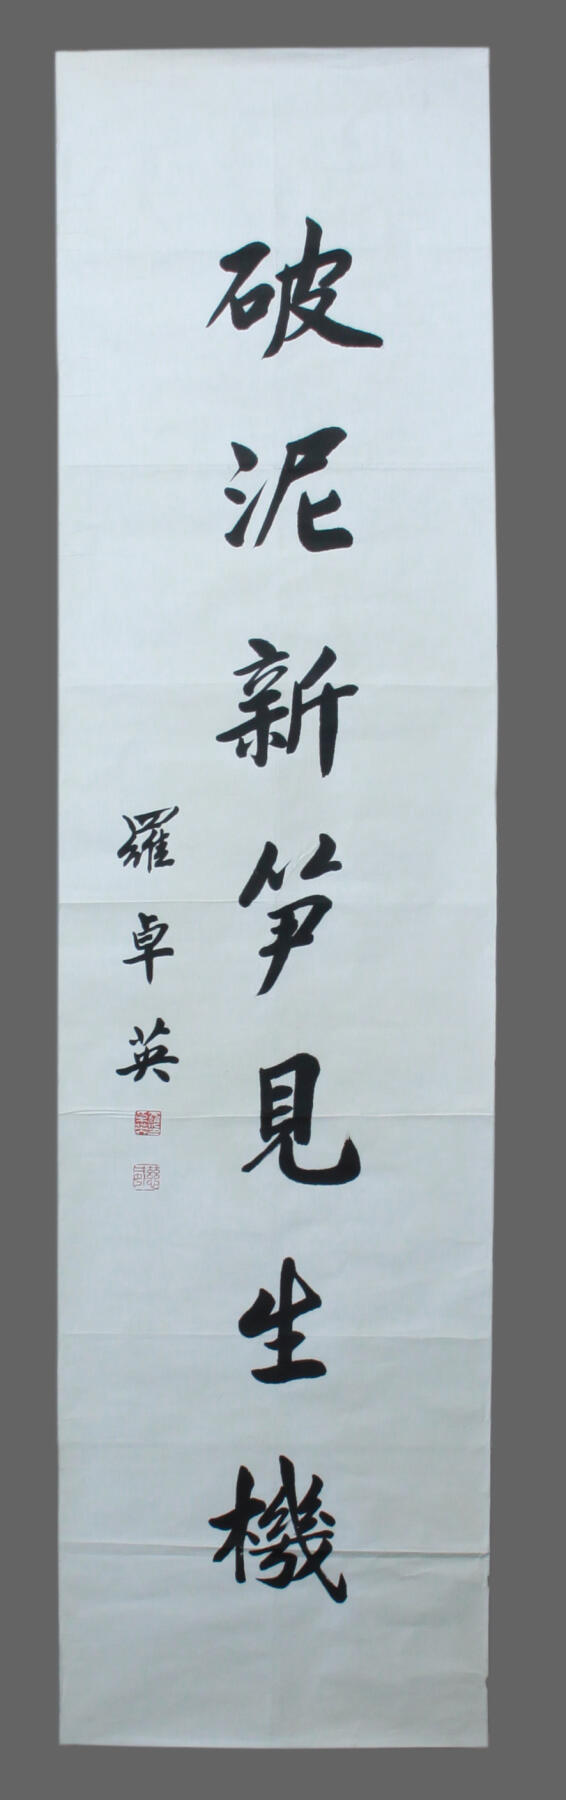 破泥新笋見生機
羅卓英